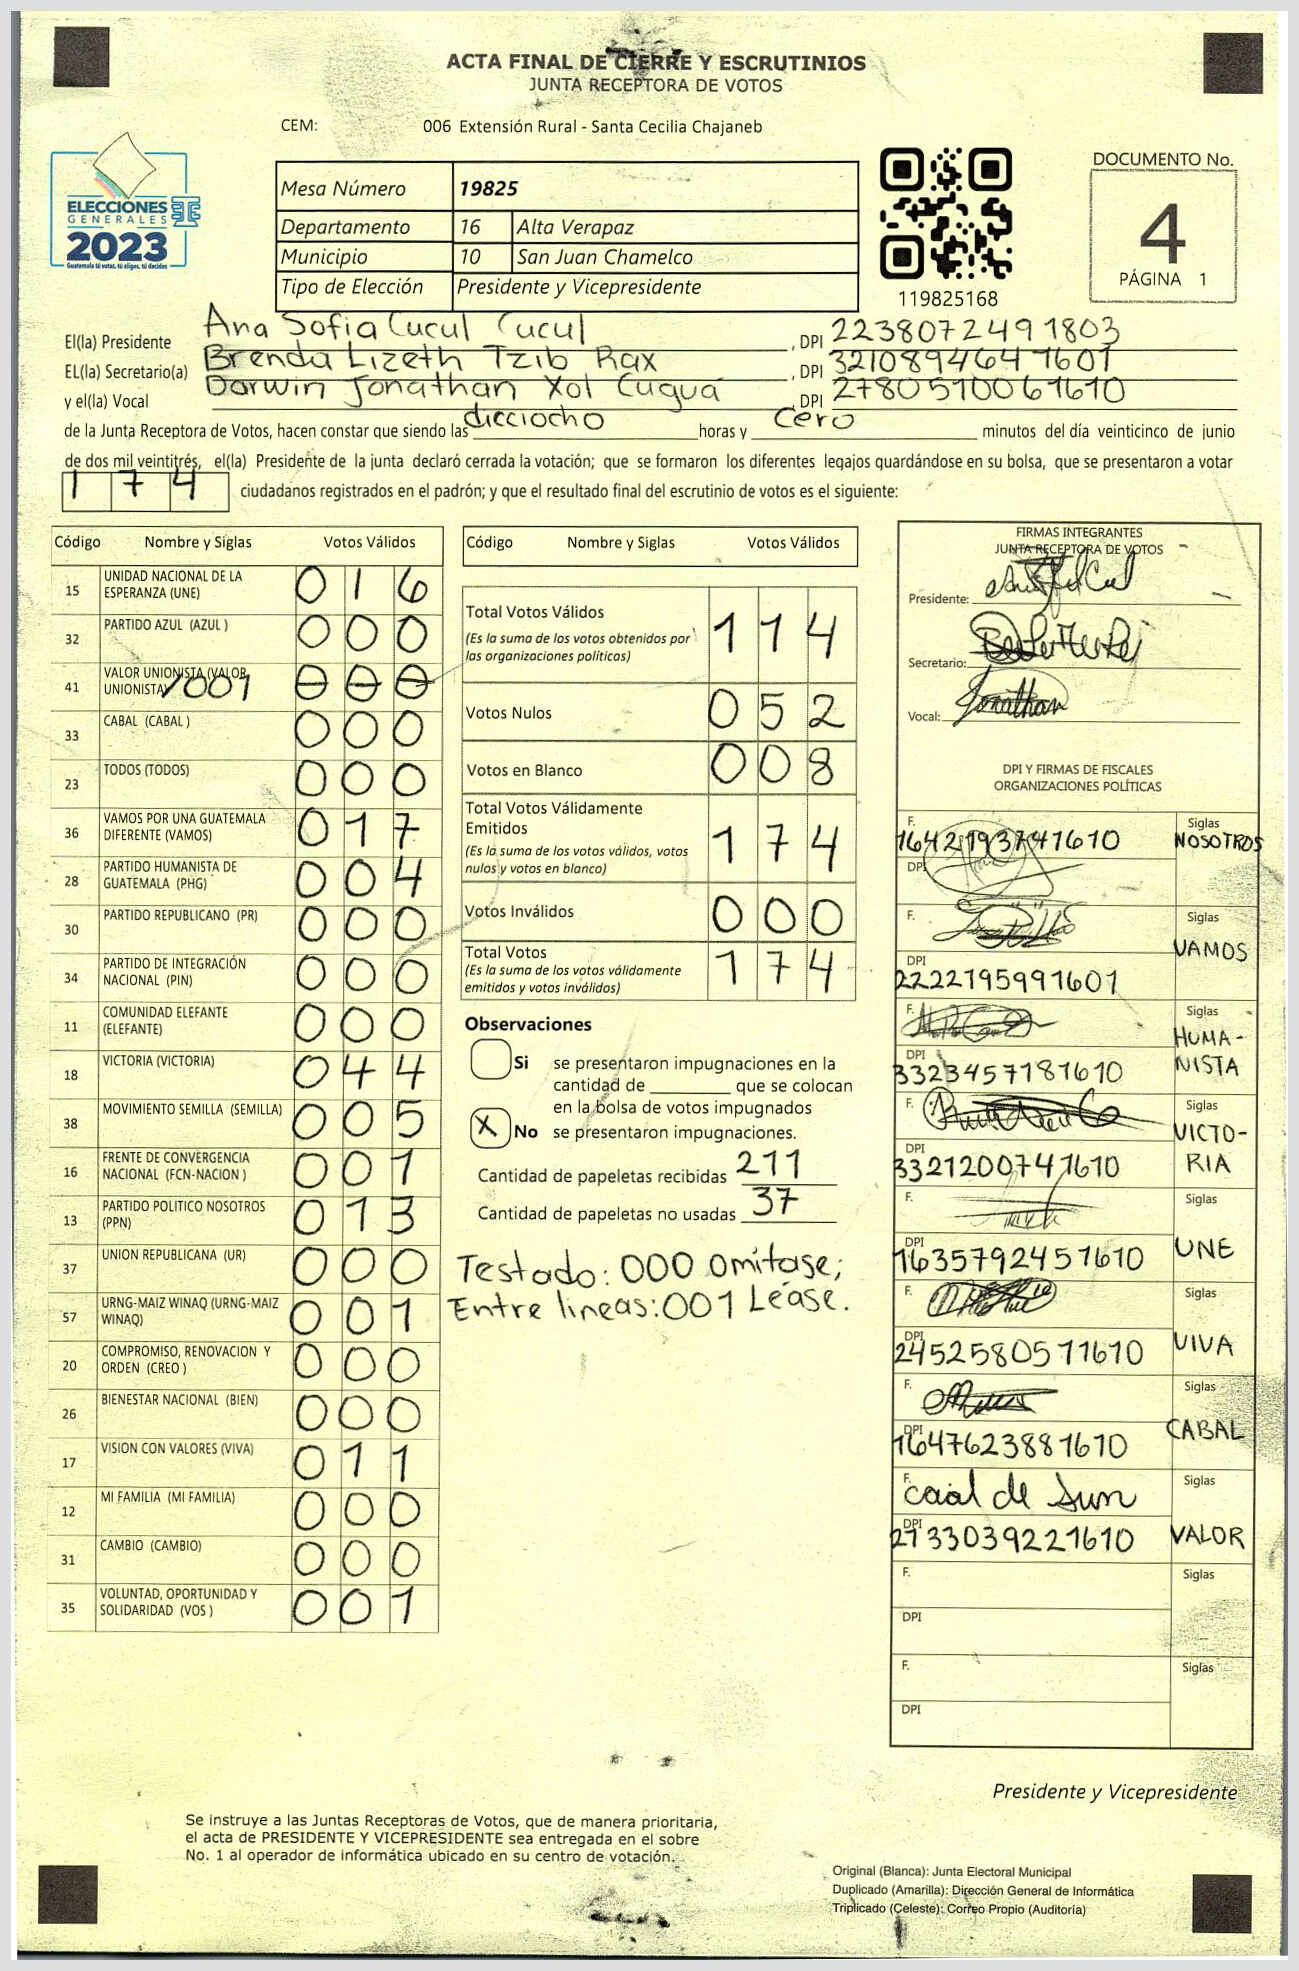 ACTA FINAL DE CIERRE Y ESCRUTINIOS
JUNTA RECEPTORA DE VOTOS
CEM: 006 Extensión Rural - Santa Cecilia Chajaneb
ELECCIONES
GENERALES
2023
Guatemala tú votas, tú eliges, tú decides
Mesa Número 19825
Departamento 16 Alta Verapaz
Municipio 10 San Juan Chamelco
Tipo de Elección Presidente y Vicepresidente
119825168
DOCUMENTO No.
4
PÁGINA 1
El(la) Presidente Ana Sofia Cucul Cucul, DPI 2238072491803
EL(la) Secretario(a) Brenda Lizeth Tzib Rax, DPI 3210894641601
y el(la) Vocal Darwin Jonathan Xol Cuguá, DPI 2780510061610
de la Junta Receptora de Votos, hacen constar que siendo las dicciocho horas y cero minutos del día veinticinco de junio
de dos mil veintitrés, el(la) Presidente de la junta declaró cerrada la votación; que se formaron los diferentes legajos guardándose en su bolsa, que se presentaron a votar
174 ciudadanos registrados en el padrón; y que el resultado final del escrutinio de votos es el siguiente:
Código Nombre y Siglas Votos Válidos
15 UNIDAD NACIONAL DE LA ESPERANZA (UNE) 016
32 PARTIDO AZUL (AZUL ) 000
41 VALOR UNIONISTA (VALOR UNIONISTA) /001 000
33 CABAL (CABAL ) 000
23 TODOS (TODOS) 000
36 VAMOS POR UNA GUATEMALA DIFERENTE (VAMOS) 017
28 PARTIDO HUMANISTA DE GUATEMALA (PHG) 004
30 PARTIDO REPUBLICANO (PR) 000
34 PARTIDO DE INTEGRACIÓN NACIONAL (PIN) 000
11 COMUNIDAD ELEFANTE (ELEFANTE) 000
18 VICTORIA (VICTORIA) 044
38 MOVIMIENTO SEMILLA (SEMILLA) 005
16 FRENTE DE CONVERGENCIA NACIONAL (FCN-NACION ) 001
13 PARTIDO POLITICO NOSOTROS (PPN) 013
37 UNION REPUBLICANA (UR) 000
57 URNG-MAIZ WINAQ (URNG-MAIZ WINAQ) 001
20 COMPROMISO, RENOVACION Y ORDEN (CREO ) 000
26 BIENESTAR NACIONAL (BIEN) 000
17 VISION CON VALORES (VIVA) 011
12 MI FAMILIA (MI FAMILIA) 000
31 CAMBIO (CAMBIO) 000
35 VOLUNTAD, OPORTUNIDAD Y SOLIDARIDAD (VOS ) 001
Código Nombre y Siglas Votos Válidos
Total Votos Válidos 114
(Es la suma de los votos obtenidos por
las organizaciones políticas)
Votos Nulos 052
Votos en Blanco 008
Total Votos Válidamente
Emitidos 174
(Es la suma de los votos válidos, votos
nulos y votos en blanco)
Votos Inválidos 000
Total Votos 174
(Es la suma de los votos válidamente
emitidos y votos inválidos)
Observaciones
Si se presentaron impugnaciones en la
cantidad de ________ que se colocan
en la bolsa de votos impugnados
X No se presentaron impugnaciones.
Cantidad de papeletas recibidas 211
Cantidad de papeletas no usadas 37
Testado: 000 Omitase;
Entre lineas: 001 Léase.
FIRMAS INTEGRANTES
JUNTA RECEPTORA DE VOTOS
Presidente:
Secretario:
Vocal: Jonathan
DPI Y FIRMAS DE FISCALES
ORGANIZACIONES POLÍTICAS
F. Siglas
DPI 1642193741610 NOSOTROS
F. Siglas
DPI 2222195991601 VAMOS
F. Siglas
DPI 3323457181610 HUMA-
NISTA
F. Siglas
DPI 3321200741610 VICTO-
RIA
F. Siglas
DPI 1635792451610 UNE
F. Siglas
DPI 2452580511610 VIVA
F. Siglas
DPI 1647623881610 CABAL
F. Siglas
DPI 2733039221610 VALOR
F. Siglas
DPI
F. Siglas
DPI
Presidente y Vicepresidente
Se instruye a las Juntas Receptoras de Votos, que de manera prioritaria,
el acta de PRESIDENTE Y VICEPRESIDENTE sea entregada en el sobre
No. 1 al operador de informática ubicado en su centro de votación.
Original (Blanca): Junta Electoral Municipal
Duplicado (Amarilla): Dirección General de Informática
Triplicado (Celeste): Correo Propio (Auditoría)